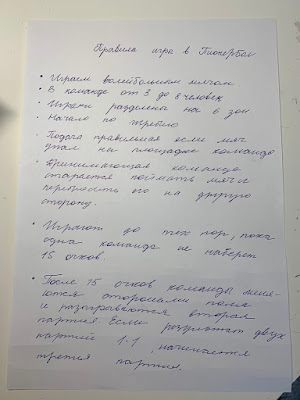 Правила игра в Пионербол
• Играем волейбольным мячом
• В команде от 3 до 8 человек
• Игроки разделена на 6 зон
• Начало по жребию
• Подача правильная если мяч
упал на площадке командо
• Принимающая команда
старается поймать мяч и
перебросить его на другую
сторону.
• Играют до тех пор, пока
одна команда не наберет
15 очков.
• После 15 очков команды меня-
ются сторонами поля
и разыгрывается вторая
партия. Если результат двух
партий 1:1, начинается
третья партия.